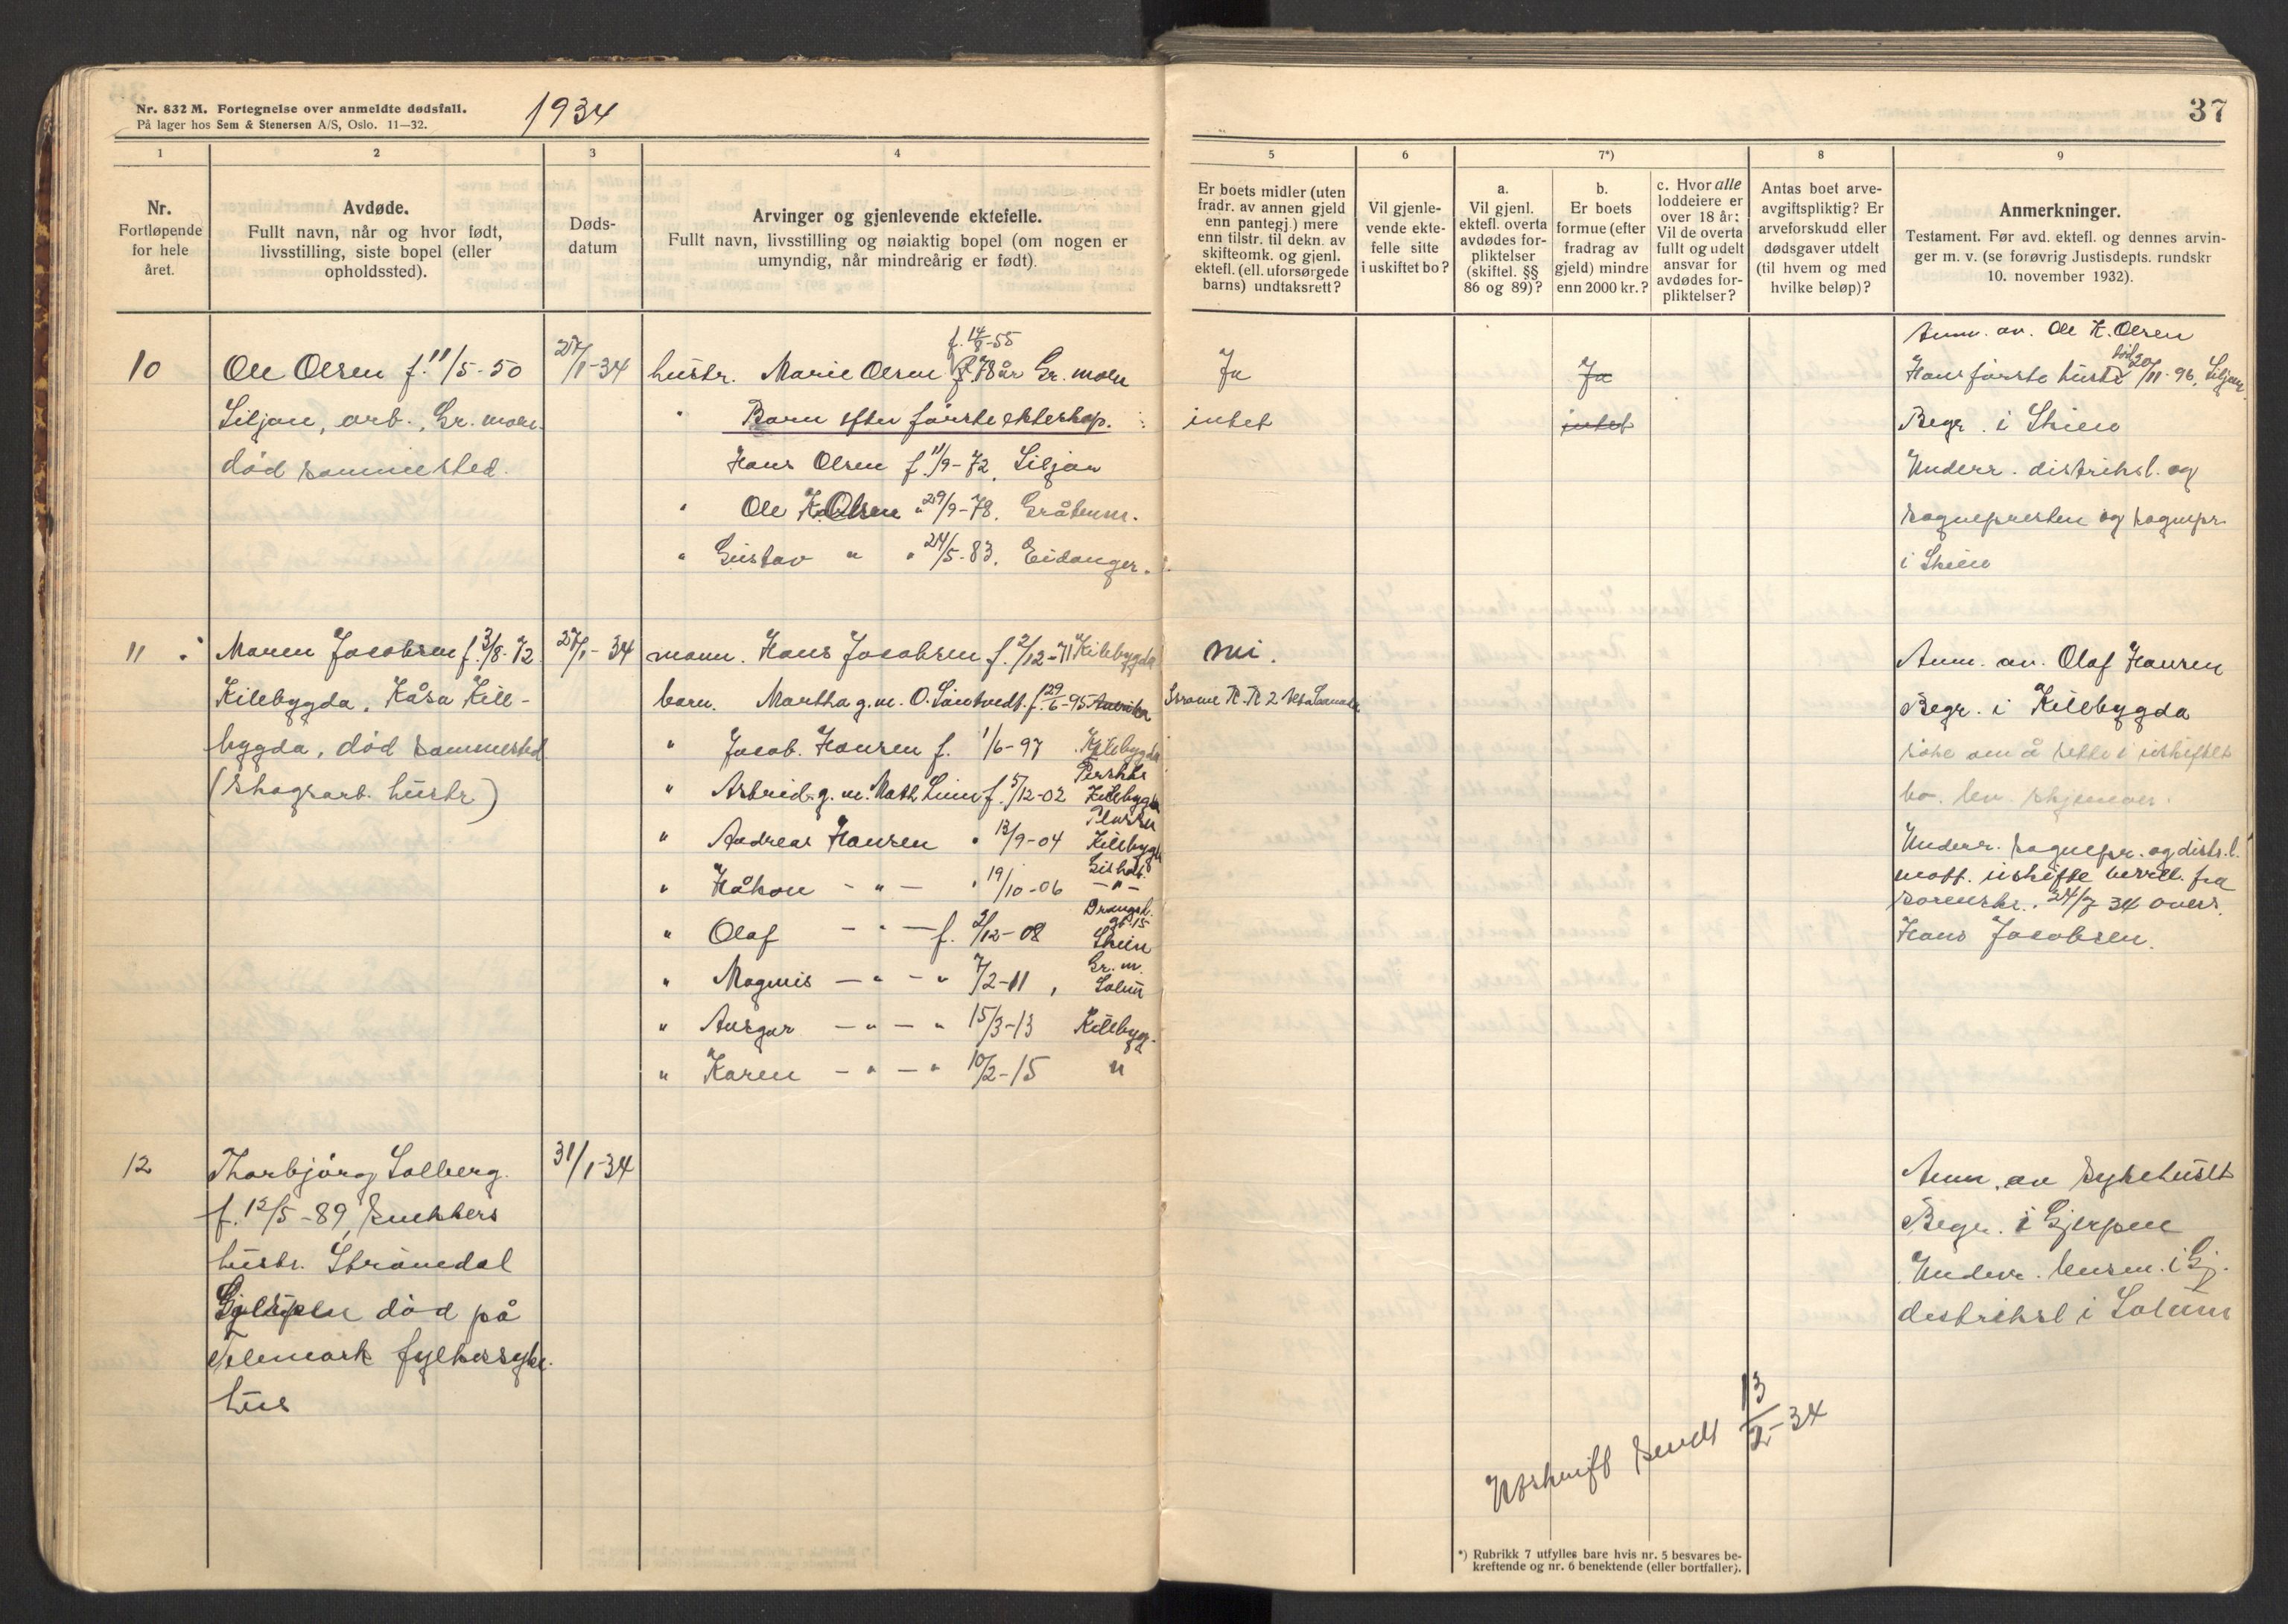 Nr. 832 M. Fortegnelse over anmeldte dødsfall.
På lager hos Sem & Stenersen A/S, Oslo. 11—32.
1934
37
1
2
3
4
5
6
7*)
8
9
Nr.
Fortløpende
for hele
året.
Avdøde.
Fullt navn, når og hvor født,
livsstilling, siste bopel (eller
opholdssted).
Døds-
datum
Arvinger og gjenlevende ektefelle.
Fullt navn, livsstilling og nøiaktig bopel (om nogen er
umyndig, når mindreårig er født).
Er boets midler (uten
fradr. av annen gjeld
enn pantegj.) mere
enn tilstr. til dekn. av
skifteomk. og gjenl.
ektefl. (ell. uforsørgede
barns) undtaksrett?
Vil gjenle-
vende ekte-
felle sitte
i uskiftet bo?
a.
Vil gjenl.
ektefl. overta
avdødes for-
pliktelser
(skiftel. §§
86 og 89)?
b.
Er boets
formue (efter
fradrag av
gjeld) mindre
enn 2000 kr.?
c. Hvor alle
loddeiere er
over 18 år:
Vil de overta
fullt og udelt
ansvar for
avdødes for-
pliktelser?
Antas boet arve-
avgiftspliktig? Er
arveforskudd eller
dødsgaver utdelt
(til hvem og med
hvilke beløp)?
Anmerkninger.
Testament. Før avd. ektefl. og dennes arvin-
ger m. v. (se forøvrig Justisdepts. rundskr
10. november 1932).
10
Ole Olsen f. 11/5-50
Siljan, arb., Gr. moen.
død sammested.
27/1-34
f. 14/8-55
hustr. Marie Olsen f. 78 år Gr. moen
" Barn efter første ekteskap.
Hans Olsen f. 11/9-72, Siljan
" Ole K. Olsen " 29/9-78. Gråtenm.
" Gustav " " 24/5-83. Eidanger.
Ja
intet
Ja
intet
Anm. av. Ole K. Olsen
Hans første hustr død 20/11-96, Siljan.
Begr. i Skien
Underr. distriksl. og
sognepresten og sognepr.
i Skien
11
Maren Jacobsen f. 3/8-72
Kilebygda, Kåsa Kile-
bygda, død sammested.
(skogsarb. hustr)
27/1-34
mann. Hans Jacobsen f. 2/12-71 Kilebygda
barn. Martha g. m. O. Santvedt. f. 29/6-95 Amerika
" Jacob. Hansen f. 1/6-97 Kilebygda
" Astrid. g. m. Math Lunn f. 5/12-02 Kilebygda
" Andreas Hansen " 13/9-04 Kilebygda
" Håkon - " - " 19/10-06 - " -
" Olaf - " - f. 2/12-08 Skien
" Magnus - " - " 7/2-11, Gr. m. Solum
" Ansgar - " - " 15/3-13 Kilebygd.
" Karen - " - " 10/2-15 "
nei.
Anm. av. Olaf Hansen
Begr. i Kilebygda
søke om å sitte i uskiftet
bo. lev. skjemaer.
Underr. sognepr. og distr. l.
mott. uskifte bevill. fra
sorenskr. 24/7 34 overs.
Hans Jacobsen.
12
Thorbjørg Solberg.
f. 12/5-89, snekkers
hustr. Strømdal
Gjerpen død på
Telemark fylkessyke-
hus
31/1-34
Anm. av sykehuset
Begr. i Gjerpen
Underr. lensm. i Gj.
distriksl i Solum
Utskrift sendt 13/2-34
*) Rubrikk 7 utfylles bare hvis nr. 5 besvares be-
kreftende og nr. 6 benektende (eller bortfaller).